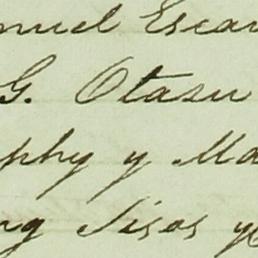 nuel Escar
G. Otasu
phy y Ma
ng Sisos y